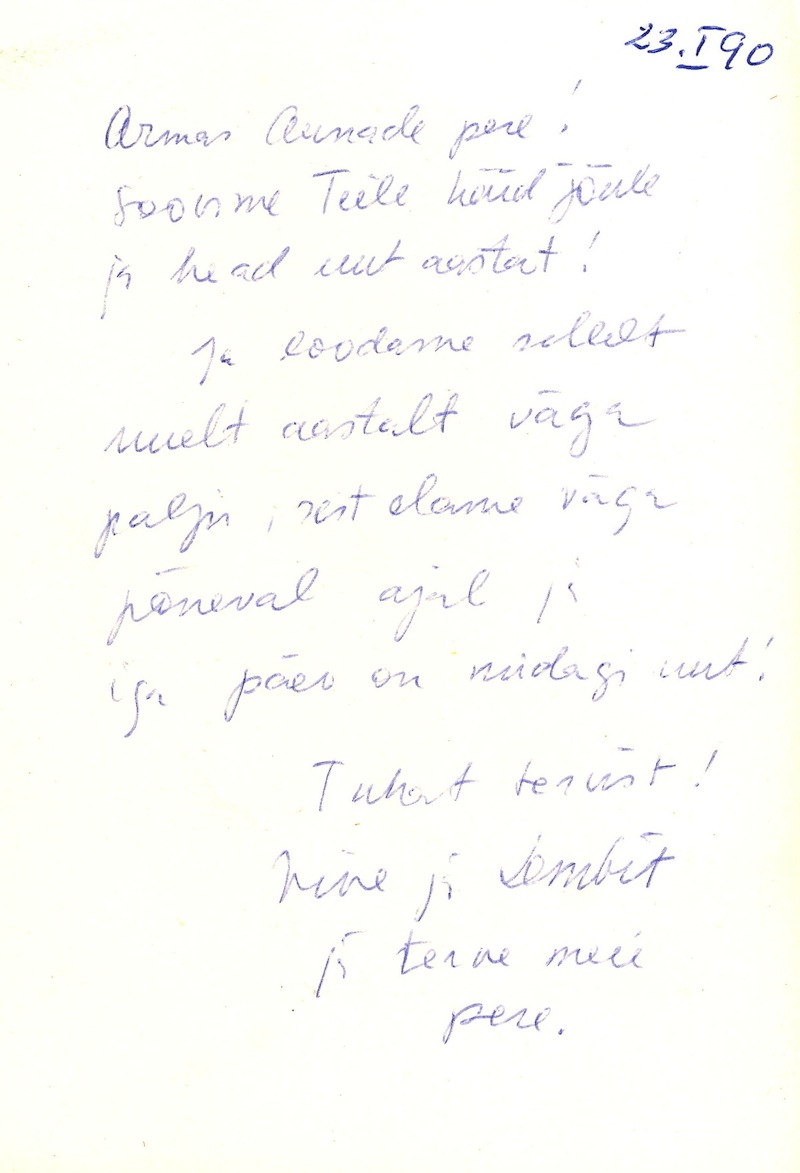 23.I 90
Armas Aunade pere!
Soovime Teile häid jõule
ja head uut aastat!
Ja loodame sellelt
uuelt aastalt väga
palju, sest elame väga
põneval ajal ja
iga päev on midagi uut!
Tuhat tervist!
ja Lembit
ja terve meie
pere.